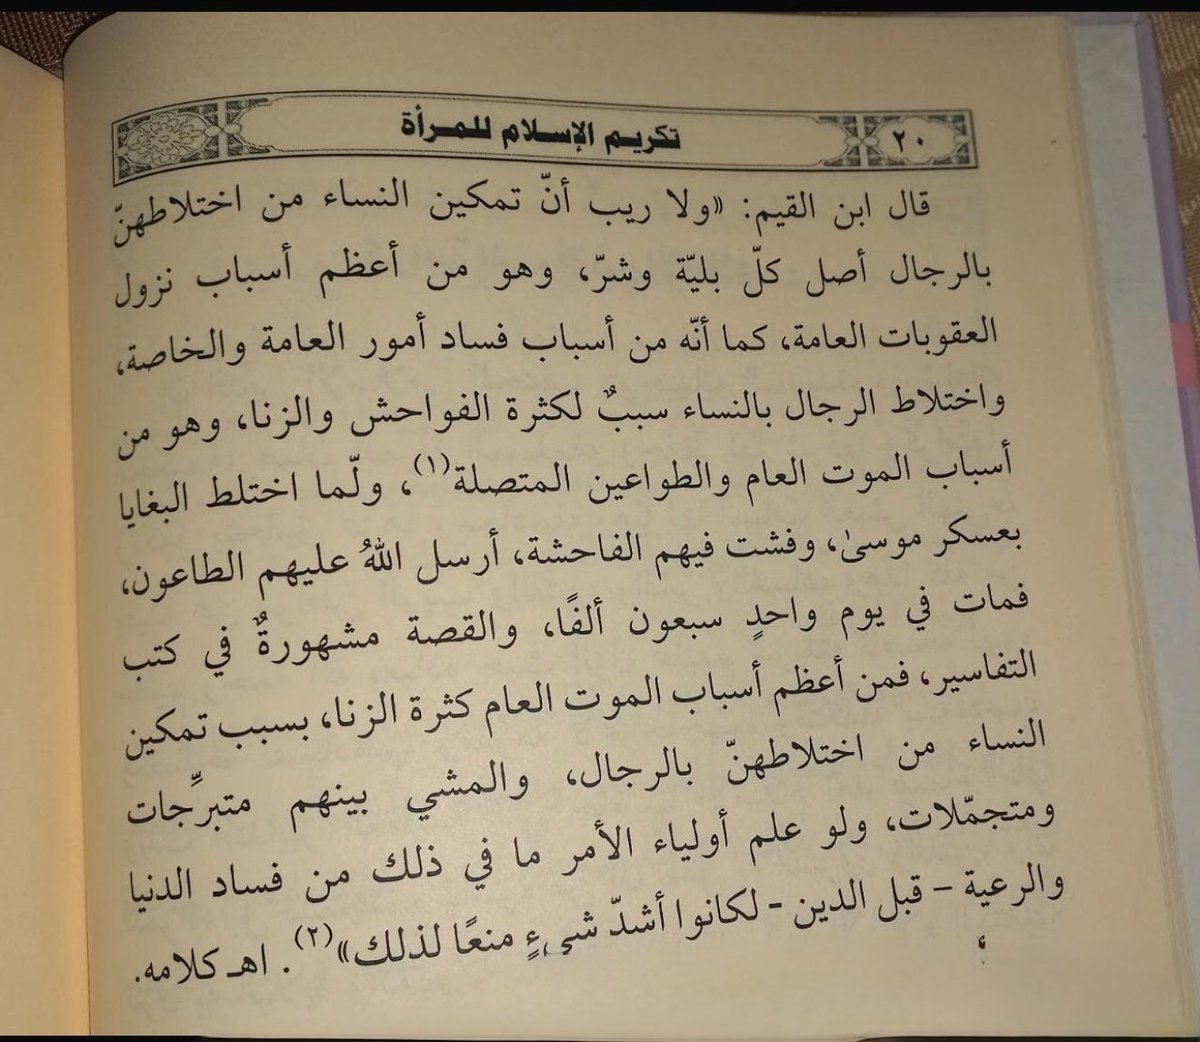 ٢٠
تكريم الإسلام للمرأة
قال ابن القيم: «ولا ريب أنّ تمكين النساء من اختلاطهنّ
بالرجال أصل كلّ بليّة وشرّ، وهو من أعظم أسباب نزول
العقوبات العامة، كما أنّه من أسباب فساد أمور العامة والخاصة،
واختلاط الرجال بالنساء سببٌ لكثرة الفواحش والزنا، وهو من
أسباب الموت العام والطواعين المتصلة(١)، ولّما اختلط البغايا
بعسكر موسىٰ، وفشت فيهم الفاحشة، أرسل اللهُ عليهم الطاعون،
فمات في يوم واحدٍ سبعون ألفًا، والقصة مشهورةٌ في كتب
التفاسير، فمن أعظم أسباب الموت العام كثرة الزنا، بسبب تمكين
النساء من اختلاطهنّ بالرجال، والمشي بينهم متبرِّجات
ومتجمّلات، ولو علم أولياء الأمر ما في ذلك من فساد الدنيا
والرعية – قبل الدين - لكانوا أشدّ شيءٍ منعًا لذلك»(٢). اهـ كلامه.